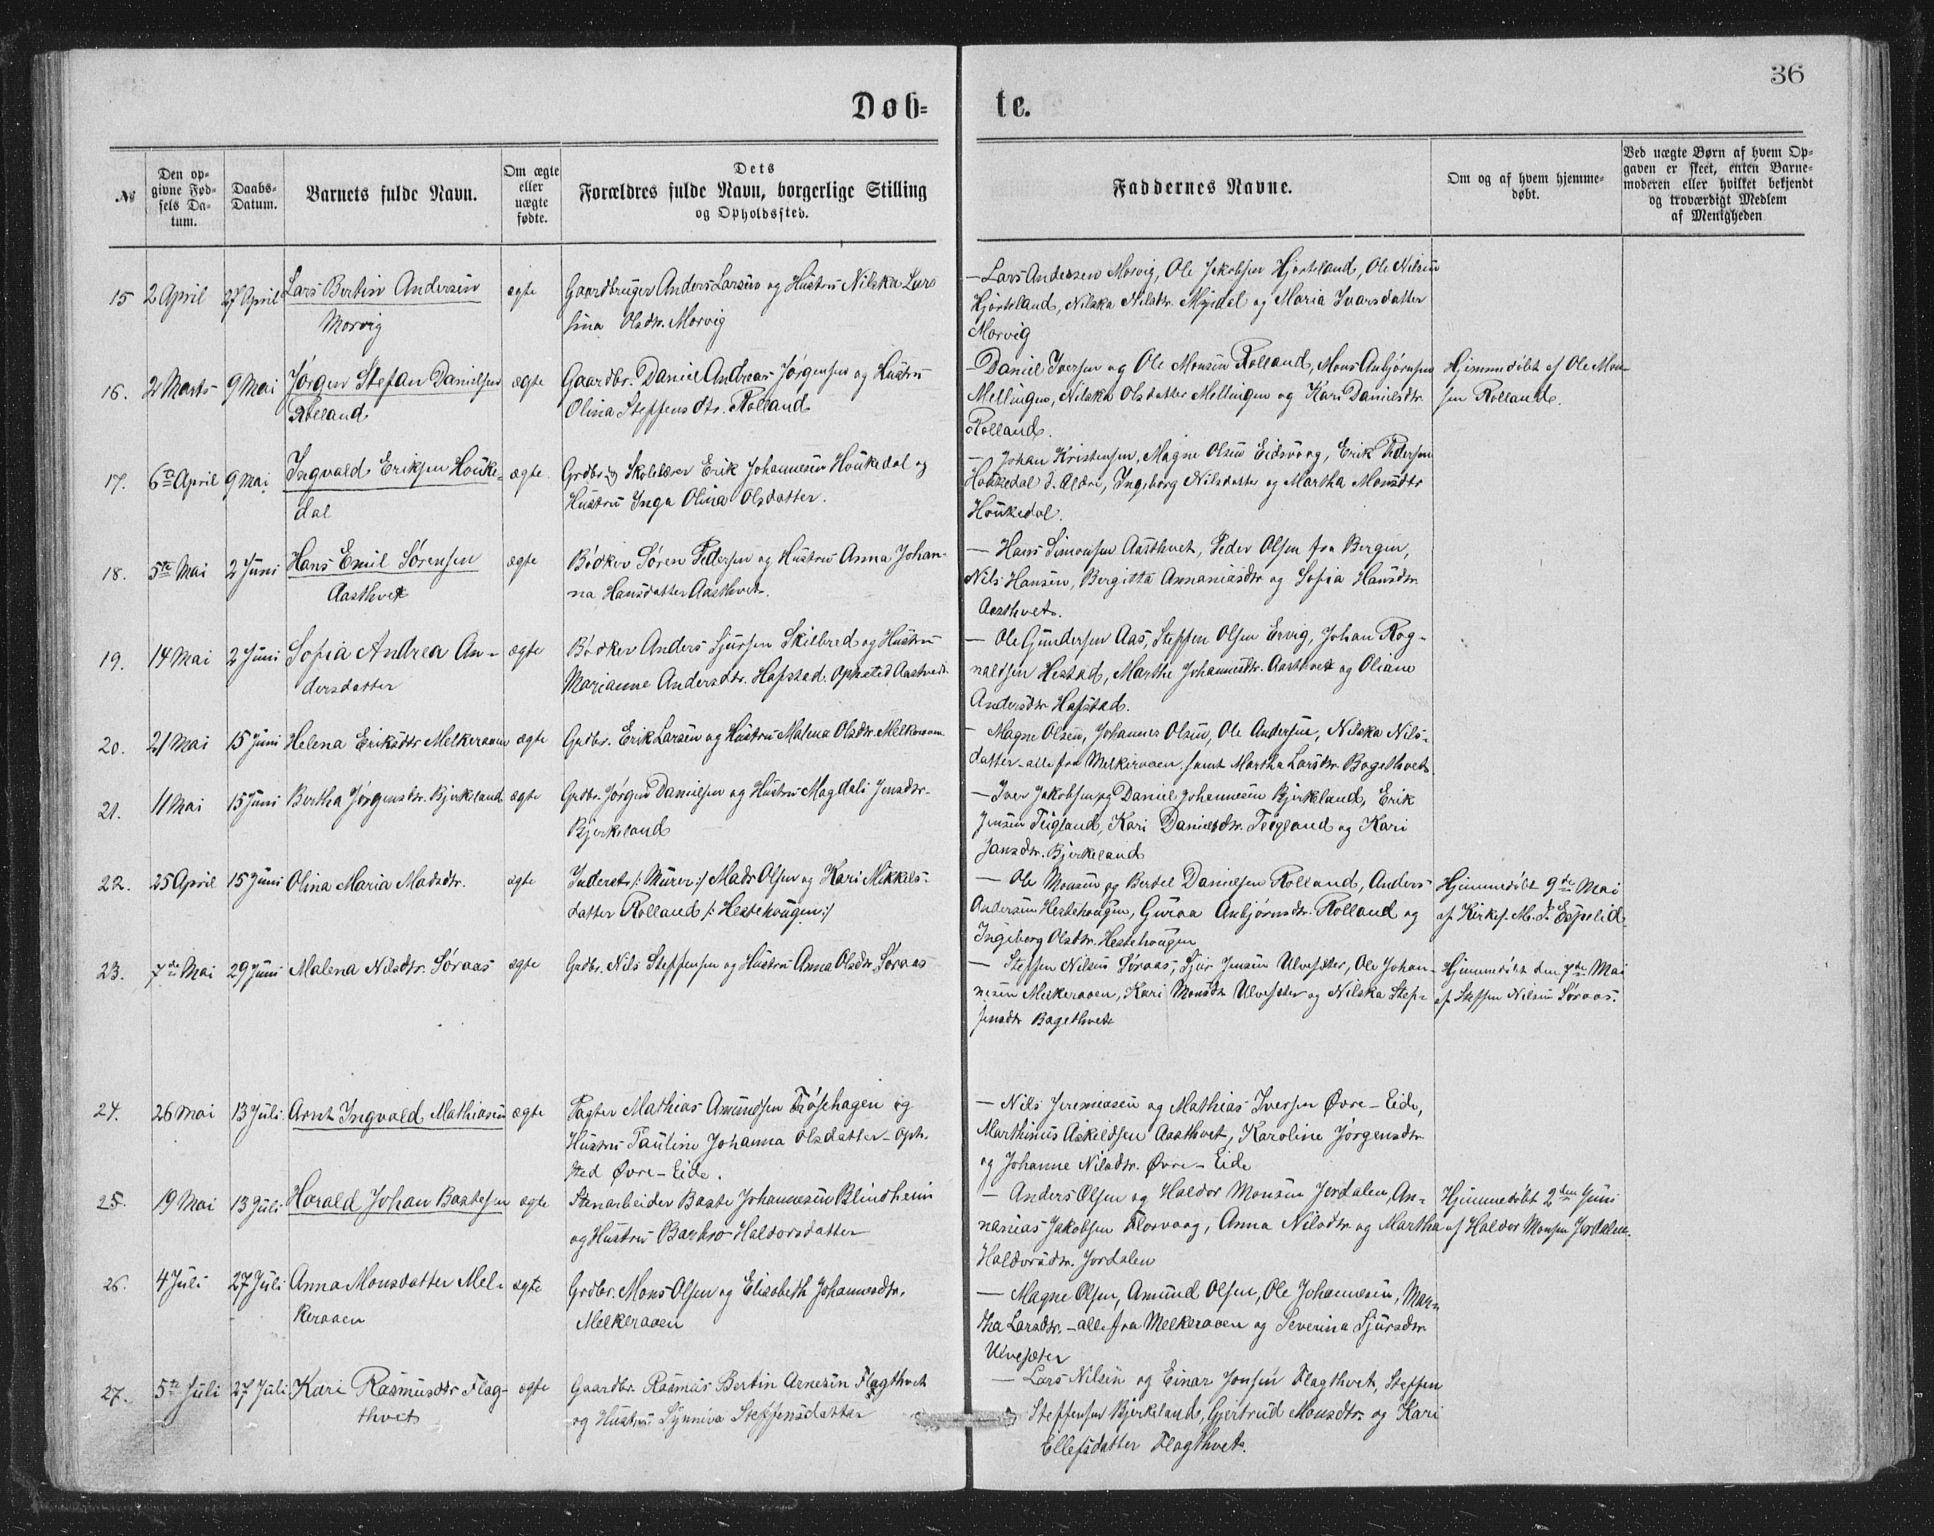 36
Døb-
te.
№
Den op-
givne Fød-
sels Da-
tum.
Daabs-
Datum.
Barnets fulde Navn.
Om ægte
eller
uægte
fødte.
Dets
Forældres fulde Navn, borgerlige Stilling
og Opholdssted.
Faddernes Navne.
Om og af hvem hjemme-
døbt.
Ved uægte Børn af hvem Op-
gaven er skeet, enten Barne-
moderen eller hvilket bekjendt
og troværdigt Medlem
af Menigheden
15 2 April 27 April Lars Bertin Andersen
Morvig
ægte
Gaardbruger Anders Larsen og Hustru Nilska Lars
sina Olsdtr. Morvig
— Lars Andersen Morvig, Ole Jakobsen Hjorteland, Ole Nilsen
Hjorteland, Nilska Nilsdtr. Myrdel og Maria Ivarsdatter
Morvig
16. 2 Marts 9 Mai Jørgen Stefan Danielsen
Rolland
ægte
Gaardbr. Daniel Andreas Jørgensen og Hustru
Olina Steffensdtr. Rolland
Daniel Iversen og Ole Monsen Rolland, Mons Anbjørnsen
Mellingen, Nilska Olsdatter Mellingen og Kari Danielsdtr.
Rolland.
Hjemmedøbt af Ole Mon-
sen Rolland.
17. 6te April 9 Mai Ingvald Eriksen Houke-
dal
ægte
Grdbr. og Skolelærer Erik Johannesen Houkedal og
Hustru Inga Olina Olsdatter.
— Johan Kristensen, Magne Olsen Eidsvaag, Erik Pedersen
Houkedal d. Ældre, Ingeborg Nilsdatter og Martha Monsdtr
Houkedal.
18. 5te Mai 2 Juni Hans Emil Sørensen
Aasthvet
ægte
Bødker Søren Pedersen og Hustru Anna Johan-
na Hansdatter Aasthvet.
— Hans Simonsen Aasthvet, Peder Olsen fra Bergen,
Nils Hansen, Bergitta Annaniasdtr og Sofia Hansdtr.
Aasthvet.
19. 14 Mai 2 Juni Sofia Andrea An-
dersdatter
ægte
Bødker Anders Sjursen Skilbred og Hustru
Marianne Andersdtr. Hafstad. Ophsted Aasthvet.
— Ole Gundersen Aas, Steffen Olsen Ervig, Johan Rog-
naldsen Hestad, Marthe Johannesdtr. Aasthvet og Oliane
Andersdtr Hafstad.
20. 21 Mai 15 Juni Helena Eriksdtr Melkeraaen ægte
Grdbr. Erik Larsen og Hustru Malena Olsdtr. Melkeraaen
— Magne Olsen, Johannes Olsen, Ole Andersen, Nilska Nils-
datter – alle fra Melkeraaen, samt Martha Larsdtr. Bagethvet.
21. 11 Mai 15 Juni Bertha Jørgensdtr. Bjerkeland ægte
Grdbr. Jørgen Danielsen og Hustru Magdali Jensdtr.
Bjerkeland
— Iver Jakobsen og Daniel Johannesen Bjerkeland, Erik
Jensen Teigland, Kari Danielsdtr. Teigland og Kari
Jansdtr. Bjerkeland
22. 25 April 15 Juni Olina Maria Madsdtr. ægte
Inderst /: Murer :/ Mads Olsen og Kari Mikkels-
datter Rolland /: Hestehougen :/
— Ole Monsen og Bertel Danielsen Rolland, Anders
Andersen Hestehougen, Guroa Anbjørnsdtr. Rolland og
Ingeborg Olsdtr. Hestehougen
Hjemmedøbt 9de Mai
af Kirkes. M. A. Espelid.
23. 7de Mai 29 Juni Malena Nilsdtr. Søraas ægte
Grdbr. Nils Steffensen og Hustru Anna Olsdtr. Søraas
— Steffen Nilsen Søraas, Sjur Jensen Ulvesæter, Ole Johan-
nesen Melkeraaen, Kari Monsdtr Ulvesæter og Nilska Stef-
fensdtr Bagethvet
Hjemmedøbt den 7de Mai
af Steffen Nilsen Søraas.
24. 26 Mai 13 Juli. Arnt Ingvald Mathiasen ægte
Pagter Mathias Amundsen Frøsehagen og
Hustru Pauline Johanna Olsdatter – Oph.
sted Øvre-Eide.
— Nils Jeremiasen og Mathias Iversen Øvre-Eide,
Marthinus Askildsen Aasthvet, Karoline Jørgensdtr
og Johanne Nilsdtr. Øvre-Eide
25. 19 Mai 13 Juli. Harald Johan Baatesen ægte
Stenarbeider Baate Johannesen Blindheim
og Hustru Barbro Haldorsdatter
— Anders Olsen og Haldor Monsen Jordalen, An-
nanias Jakobsen Florvaag, Anna Nilsdtr og Martha
Haldorsdtr. Jordalen
Hjemmedøbt 2den Juni
af Haldor Monsen Jordalen.
26. 4 Juli 27 Juli Anna Monsdatter Mel-
keraaen
ægte
Grdbr. Mons Olsen og Elisabeth Johannesdtr.
Melkeraaen
— Magne Olsen, Amund Olsen, Ole Johannesen, Mar-
tha Larsdtr. – alle fra Melkeraaen og Severina Sjursdtr
Ulvesæter
27. 5te Juli 27 Juli Kari Rasmusdtr Flag-
thvet
ægte
Gaardbr. Rasmus Bertin Arnesen Flagthvet
og Hustru Synniva Steffensdatter
— Lars Nilsen og Einar Jonsen Flagthvet, Steffen
Steffensen Bjerkeland, Gjertrud Monsdtr. og Kari
Ellefsdatter Flagthvet.